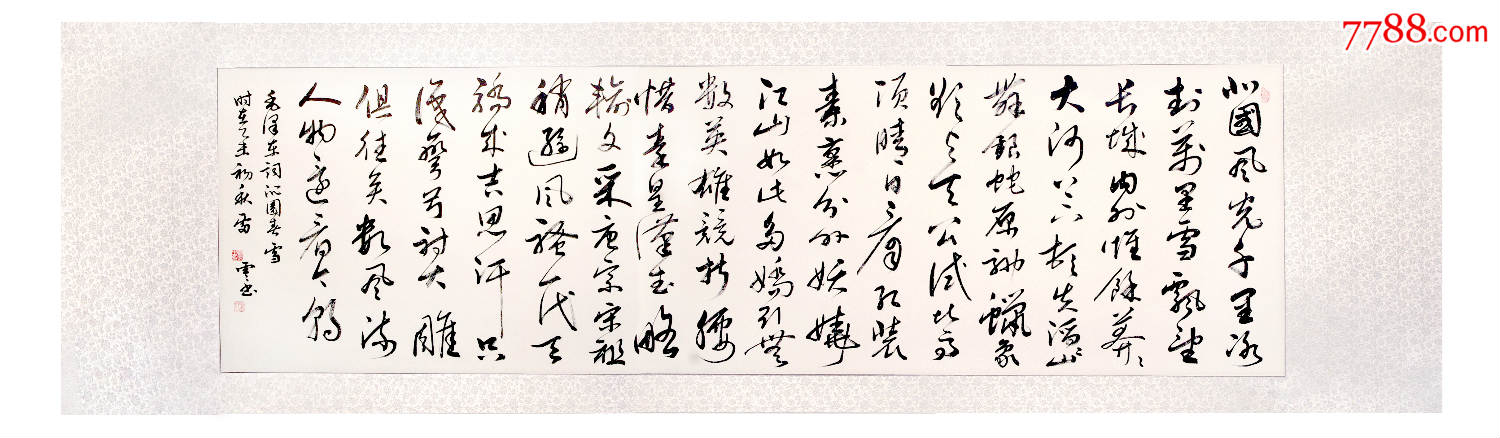 7788.com
北國风光千里冰
封萬里雪飄望
长城内外惟餘莽〻
大河上下顿失滔〻山
舞銀蛇原馳蠟象
欲与天公試比高
須晴日看红裝
素裹分外妖嬈
江山如此多嬌引無
數英雄競折腰
惜秦皇漢武略
輸文采唐宗宋祖
稍遜风骚一代天
驕成吉思汗只
識彎弓射大雕
俱往矣數风流
人物還看今朝
毛泽东詞沁園春雪
时在乙未初秋雷
雲书